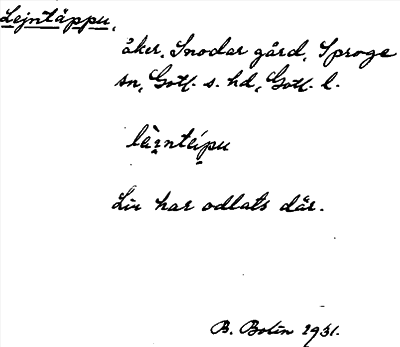 Lejntäppu,
åker, Snodar gård, Sproge
sn, Gotl. s. hd, Gotl. l.
lèi̯ntei̯pu
Lin har odlats där.
B. Bolin 1931.